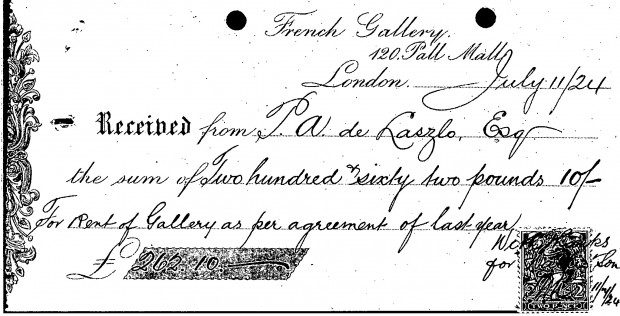 French Gallery.
120. Pall Mall
London. July 11/24
Received from P. A. de Laszlo, Esq
the sum of Two hundred & sixty two pounds 10/-
For Rent of Gallery as per agreement of last year,
With thanks
£ 262-10-
for Son
11/7/24